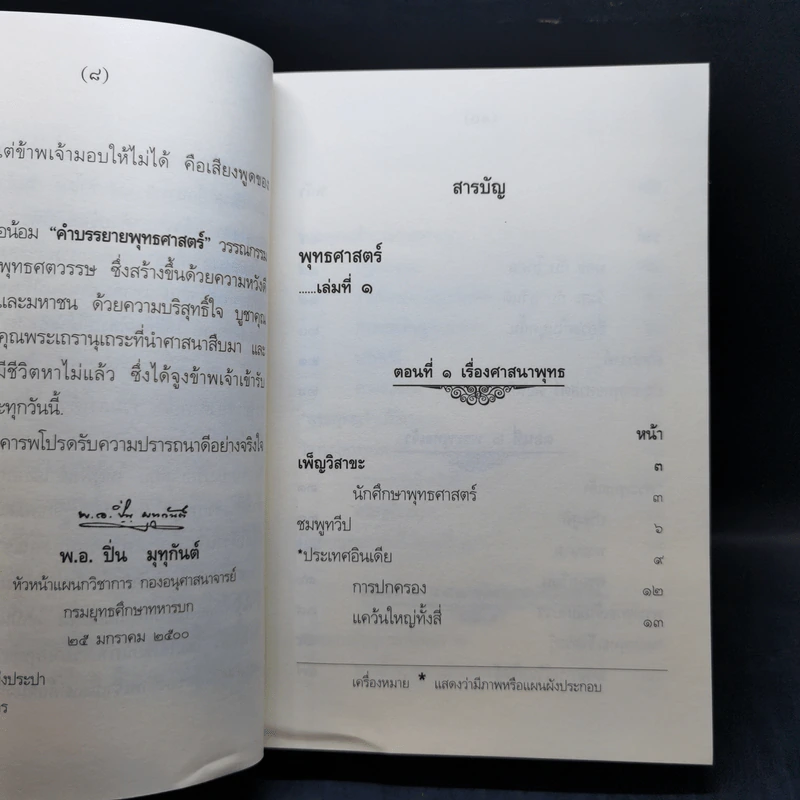 (๘)
แต่ข้าพเจ้ามอบให้ไม่ได้ คือเสียงพูดของ
น้อม "คำบรรยายพุทธศาสตร์" วรรณกรรม
พุทธศตวรรษ ซึ่งสร้างขึ้นด้วยความหวังดี
และมหาชน ด้วยความบริสุทธิ์ใจ บูชาคุณ
คุณพระเถรานุเถระที่นำศาสนาสืบมา และ
มีชีวิตหาไม่แล้ว ซึ่งได้จูงข้าพเจ้าเข้ารับ
ทุกวันนี้.
คารพโปรดรับความปรารถนาดีอย่างจริงใจ
พ.อ. ปิ่น มุทุกันต์
พ.อ. ปิ่น มุทุกันต์
หัวหน้าแผนกวิชาการ กองอนุศาสนาจารย์
กรมยุทธศึกษาทหารบก
๒๕ มกราคม ๒๕๐๐
สารบัญ
พุทธศาสตร์
......เล่มที่ ๑
ตอนที่ ๑ เรื่องศาสนาพุทธ
หน้า
เพ็ญวิสาขะ ๓
นักศึกษาพุทธศาสตร์ ๓
ชมพูทวีป ๖
*ประเทศอินเดีย ๙
การปกครอง ๑๒
แคว้นใหญ่ทั้งสี่ ๑๓
เครื่องหมาย * แสดงว่ามีภาพหรือแผนผังประกอบ